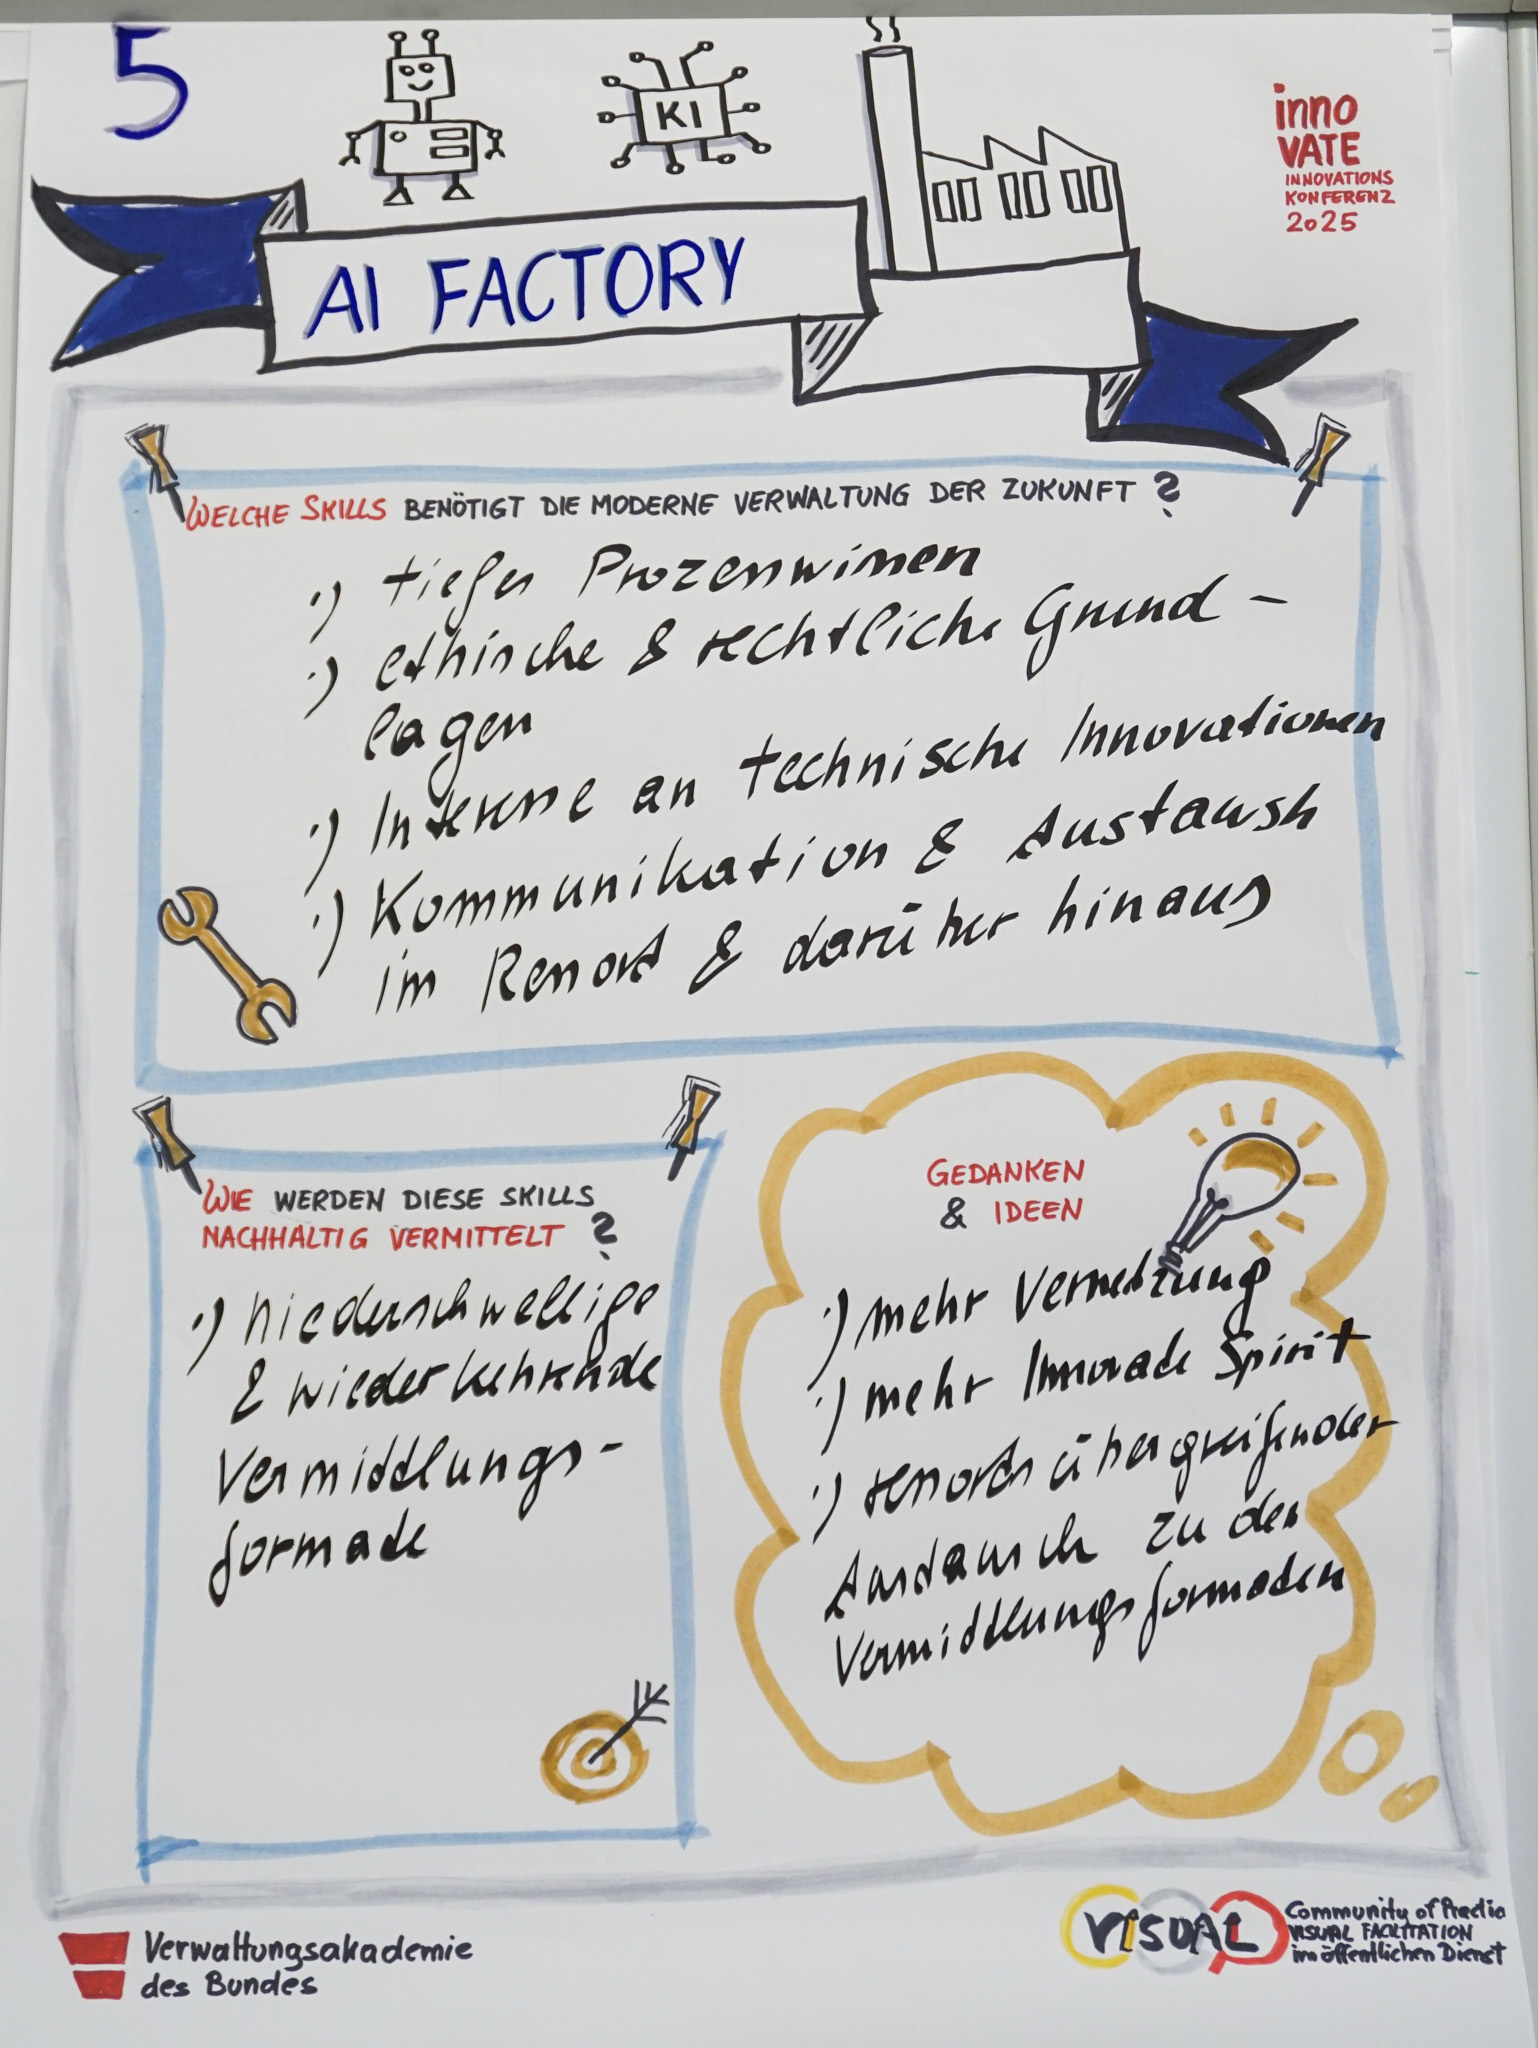 5
KI
inno
VATE
INNOVATIONS
KONFERENZ
2025
AI FACTORY
WELCHE SKILLS BENÖTIGT DIE MODERNE VERWALTUNG DER ZUKUNFT?
·) tiefes Prozesswissen
·) ethische & rechtliche Grund-
lagen
·) Interesse an technische Innovationen
·) Kommunikation & Austaush
im Ressort & darüber hinaus
WIE WERDEN DIESE SKILLS
NACHHALTIG VERMITTELT?
·) niederschwellige
& wiederkehrende
Vermittlungs-
formate
GEDANKEN
& IDEEN
·) mehr Vernetzung
·) mehr Innovate Spirit
·) ressortsübergreifender
Austausch zu den
Vermittlungsformaten
Verwaltungsakademie
des Bundes
VISUAL
Community of Practice
VISUAL FACILITATION
im öffentlichen Dienst